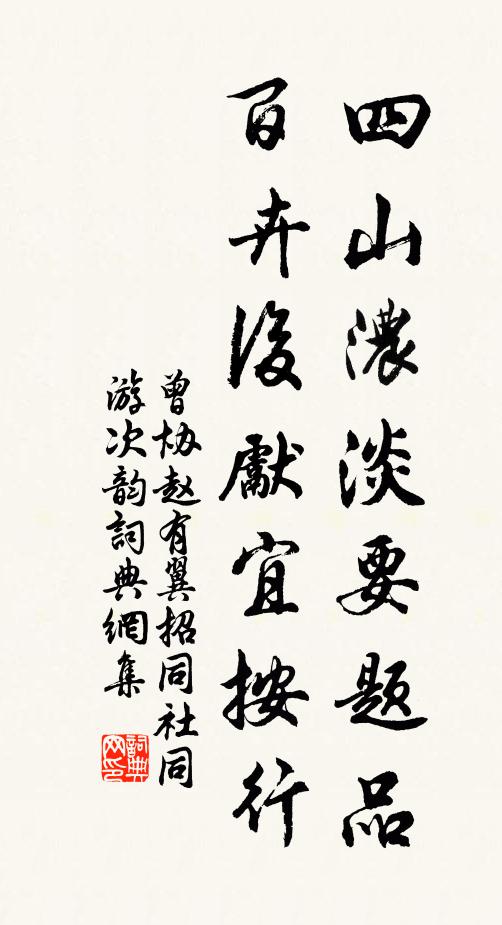 四山濃淡要题品
百卉後獻宜按行
曾协赵有翼招同社同
游次韵詞典網集
詞典
网印